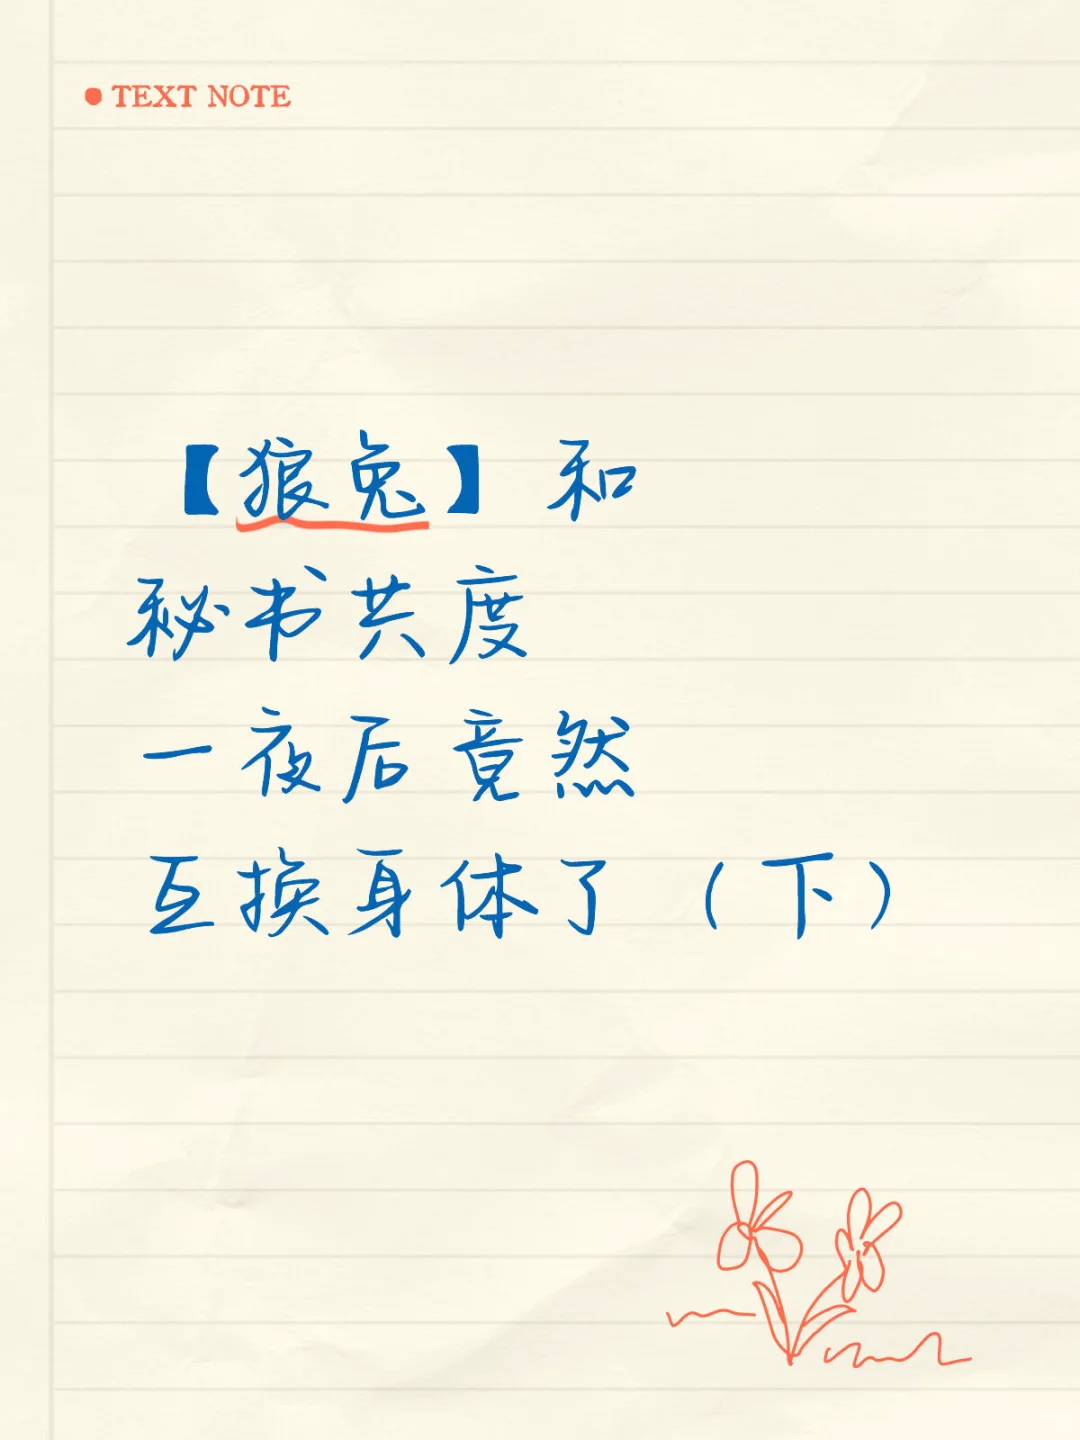 TEXT NOTE
【狼兔】和
秘书共度
一夜后竟然
互换身体了（下）